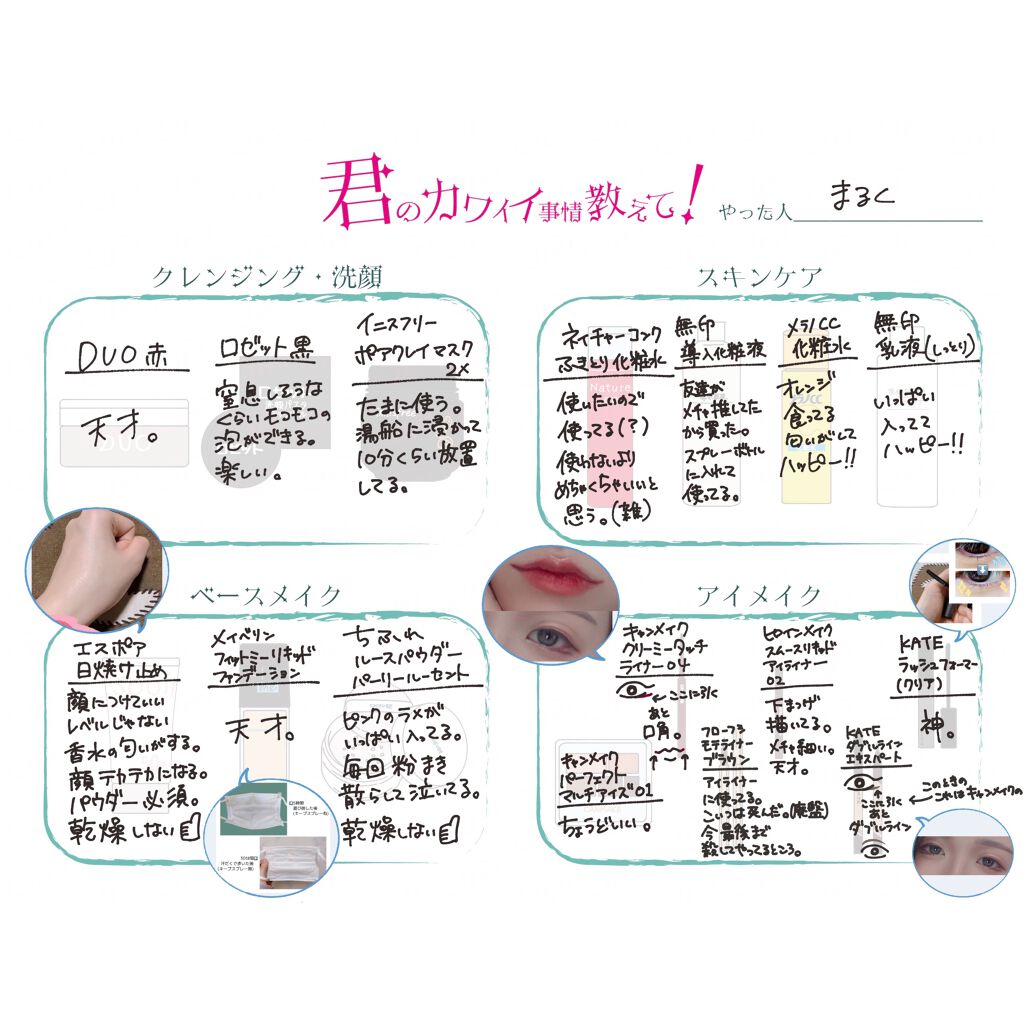 君のカワイイ事情教えて！
やった人 まるく
クレンジング・洗顔
DUO 赤
天才。
ロゼット黒
窒息しそうな
くらいモコモコの
泡ができる。
楽しい。
イニスフリー
ポアクレイマスク
2X
たまに使う。
湯船に浸かって
10分くらい放置
してる。
スキンケア
ネイチャーコンク
ふきとり化粧水
使いたいので
使ってる(?)
使わないより
めちゃくちゃいいと
思う。(雑)
無印
導入化粧液
友達が
メチャ推してた
から買った。
スプレーボトル
に入れて
使ってる。
メラノCC
化粧水
オレンジ
食ってる
匂いがして
ハッピー!!
無印
乳液(しっとり)
いっぱい
入ってて
ハッピー!!
Nature
ベースメイク
エスポア
日焼け止め
顔につけていい
レベルじゃない
香水の匂いがする。
顔テカテカになる。
パウダー必須。
乾燥しない
メイベリン
フィットミーリキッド
ファンデーション
天才。
ちふれ
ルースパウダー
パーリールーセント
ピンクのラメが
いっぱい入ってる。
毎回粉まき
散らして泣いてる。
乾燥しない
アイメイク
キャンメイク
クリーミータッチ
ライナー04
←ここに引く
あと
口角。
キャンメイク
パーフェクト
マルチアイズ01
ちょうどいい。
ヒロインメイク
スムースリキッド
アイライナー
02
下まつげ
描いてる。
メチャ細い。
天才。
フローフシ
モテライナー
ブラウン
アイライナー
に使ってる。
こいつは死んだ。(廃盤)
今最後まで
殺してやってるところ。
KATE
ラッシュフォーマー
(クリア)
神。
KATE
ダブルライン
エキスパート
↑
ここに引く
あと
ダブルライン
このときの
これはキャンメイクの